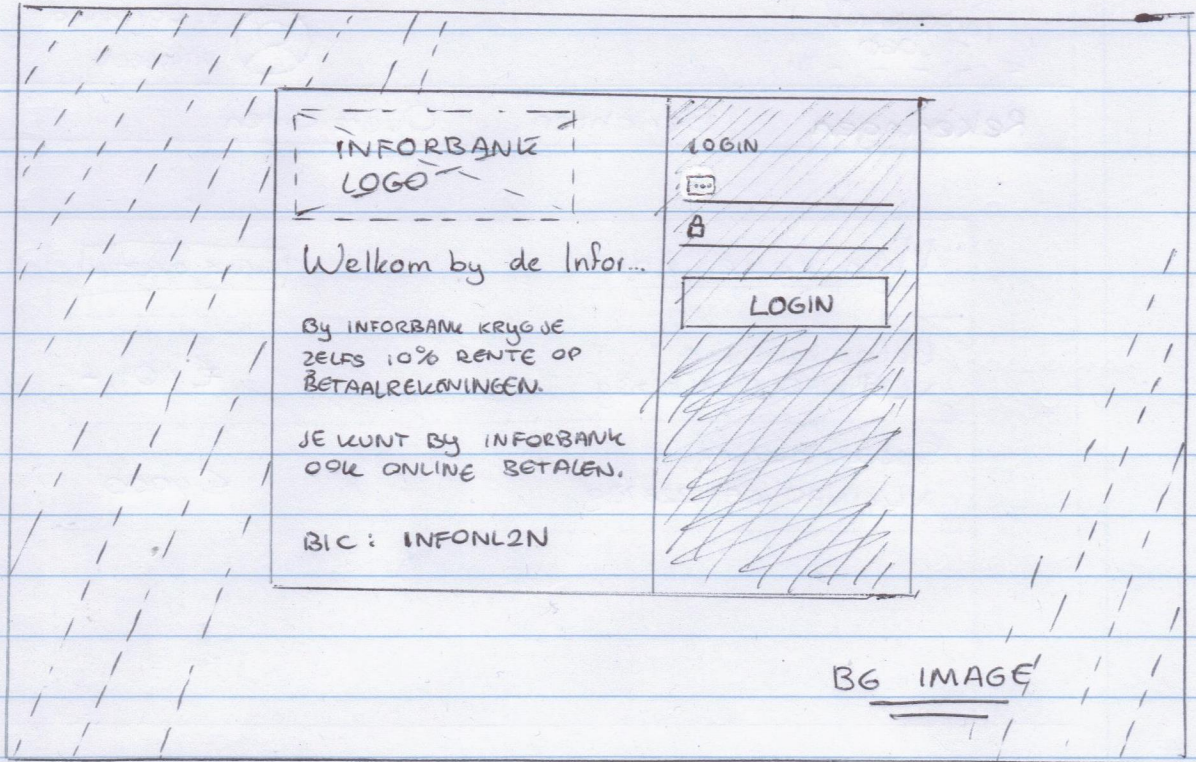 INFORBANK
LOGO
Welkom by de Infor...
By INFORBANK KRYG JE
ZELFS 10% RENTE OP
BETAALREKENINGEN.
JE KUNT By INFORBANK
OOK ONLINE BETALEN.
BIC: INFONL2N
LOGIN
LOGIN
BG IMAGE